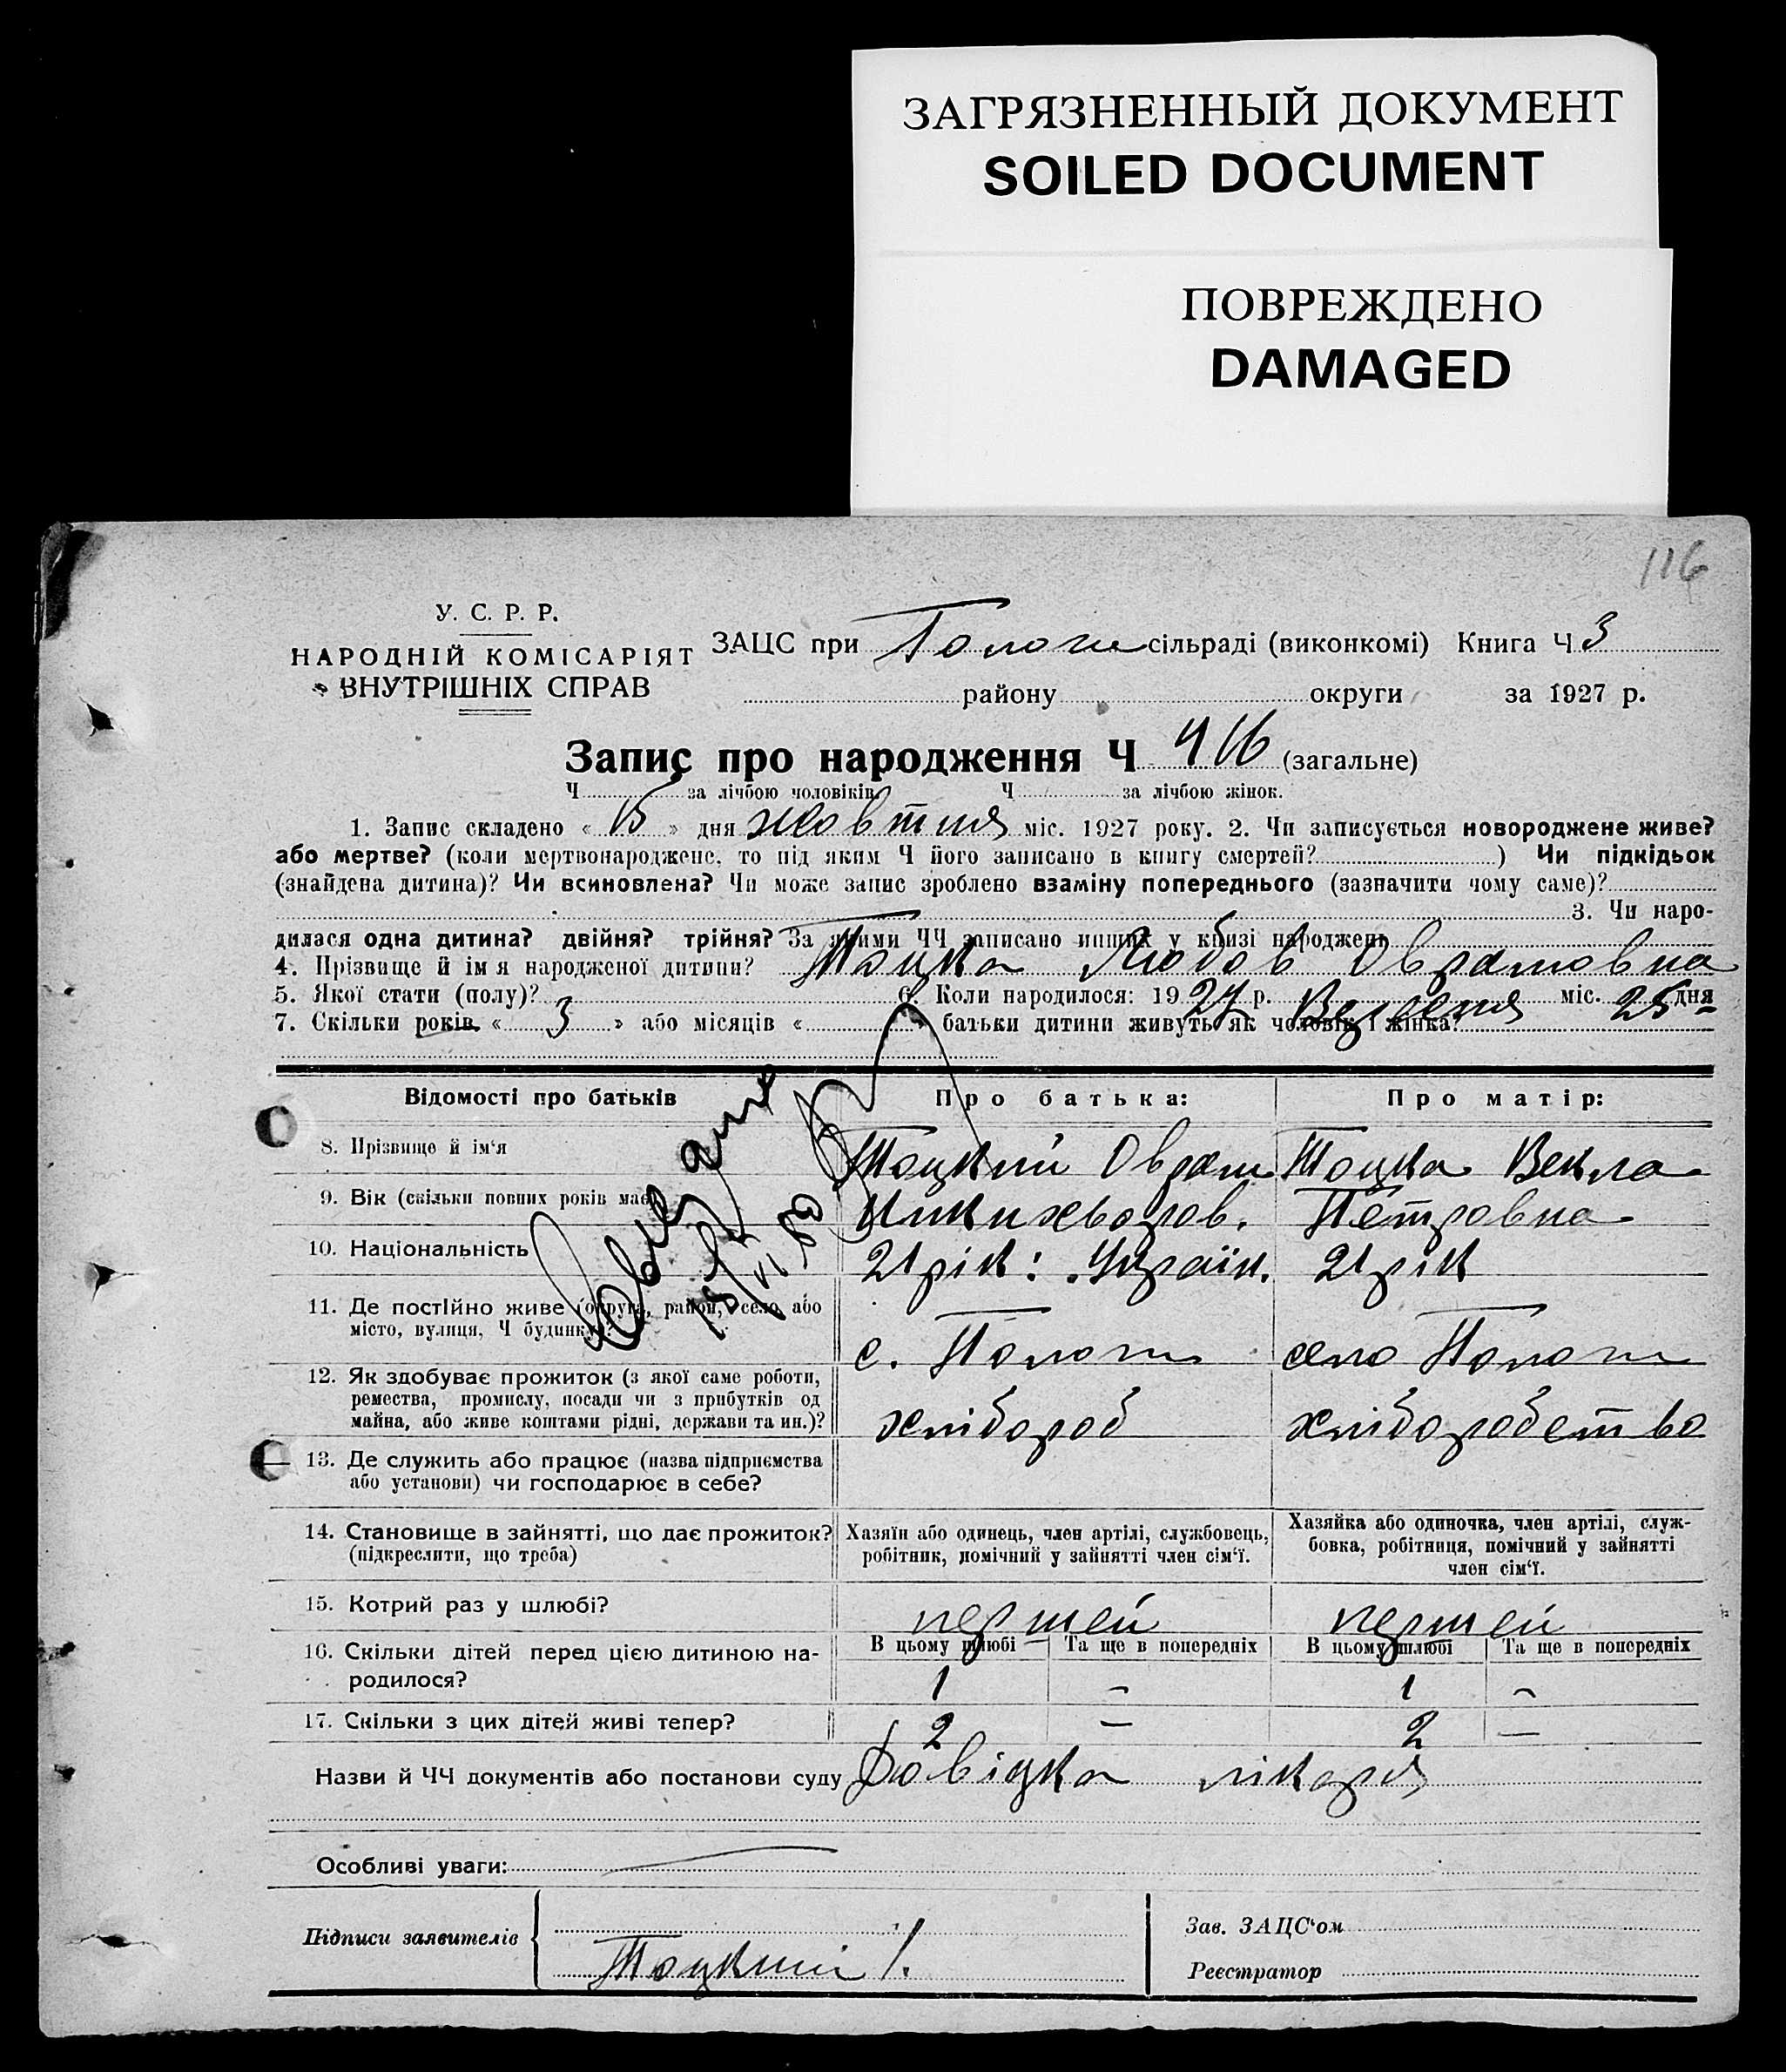 ЗАГРЯЗНЕННЫЙ ДОКУМЕНТ
SOILED DOCUMENT
ПОВРЕЖДЕНО
DAMAGED
116
У. С. Р. Р.
НАРОДНІЙ КОМІСАРІЯТ
ВНУТРІШНІХ СПРАВ
ЗАЦС при Пологи сільраді (виконкомі) Книга Ч 3
району округи за 1927 р.
Запис про народження Ч 416 (загальне)
Ч за лічбою чоловіків. Ч за лічбою жінок.
1. Запис складено « 15 » дня жовтня міс. 1927 року. 2. Чи записується новороджене живе?
або мертве? (коли мертвонароджене, то під яким Ч його записано в книгу смертей? ) Чи підкідьок
(знайдена дитина)? Чи всиновлена? Чи може запис зроблено взаміну попереднього (зазначити чому саме)?
3. Чи наро-
дилася одна дитина? двійня? трійня? За якими ЧЧ записано инших у книзі народжень
4. Прізвище й ім я народженої дитини? Тоцка Любов Оврамовна
5. Якої стати (полу)? 6. Коли народилося: 1927 р. Вересня міс. 25 дня
7. Скільки років « 3 » або місяців « » батьки дитини живуть як чоловік і жінка?
Відомості про батьків Про батька: Про матір:
8. Прізвище й ім'я Тоцкий Оврам Тоцка Векла
9. Вік (скільки повних років має) Никихворов. Петровна
10. Національність 21 рік: Україн. 21 рік
11. Де постійно живе (округа, район, село або
місто, вулиця, Ч будинку)? с. Пологи село Пологи
12. Як здобуває прожиток (з якої саме роботи,
ремества, промислу, посади чи з прибутків од
майна, або живе коштами рідні, держави та ин.)? хлібороб хліборобство
13. Де служить або працює (назва підприємства
або установи) чи господарює в себе?
14. Становище в зайнятті, що дає прожиток?
(підкреслити, що треба)
Хазяїн або одинець, член артілі, службовець,
робітник, помічний у зайнятті член сім'ї.
Хазяйка або одиночка, член артілі, служ-
бовка, робітниця, помічний у зайнятті
член сім'ї.
15. Котрий раз у шлюбі? першей першей
16. Скільки дітей перед цією дитиною на-
родилося?
В цьому шлюбі Та ще в попередніх В цьому шлюбі Та ще в попередніх
1 - 1 -
17. Скільки з цих дітей живі тепер? 2 — 2 —
Назви й ЧЧ документів або постанови суду Довідка лікаря
Особливі уваги:
Підписи заявителів Тоцкий
Зав. ЗАЦС'ом
Реєстратор